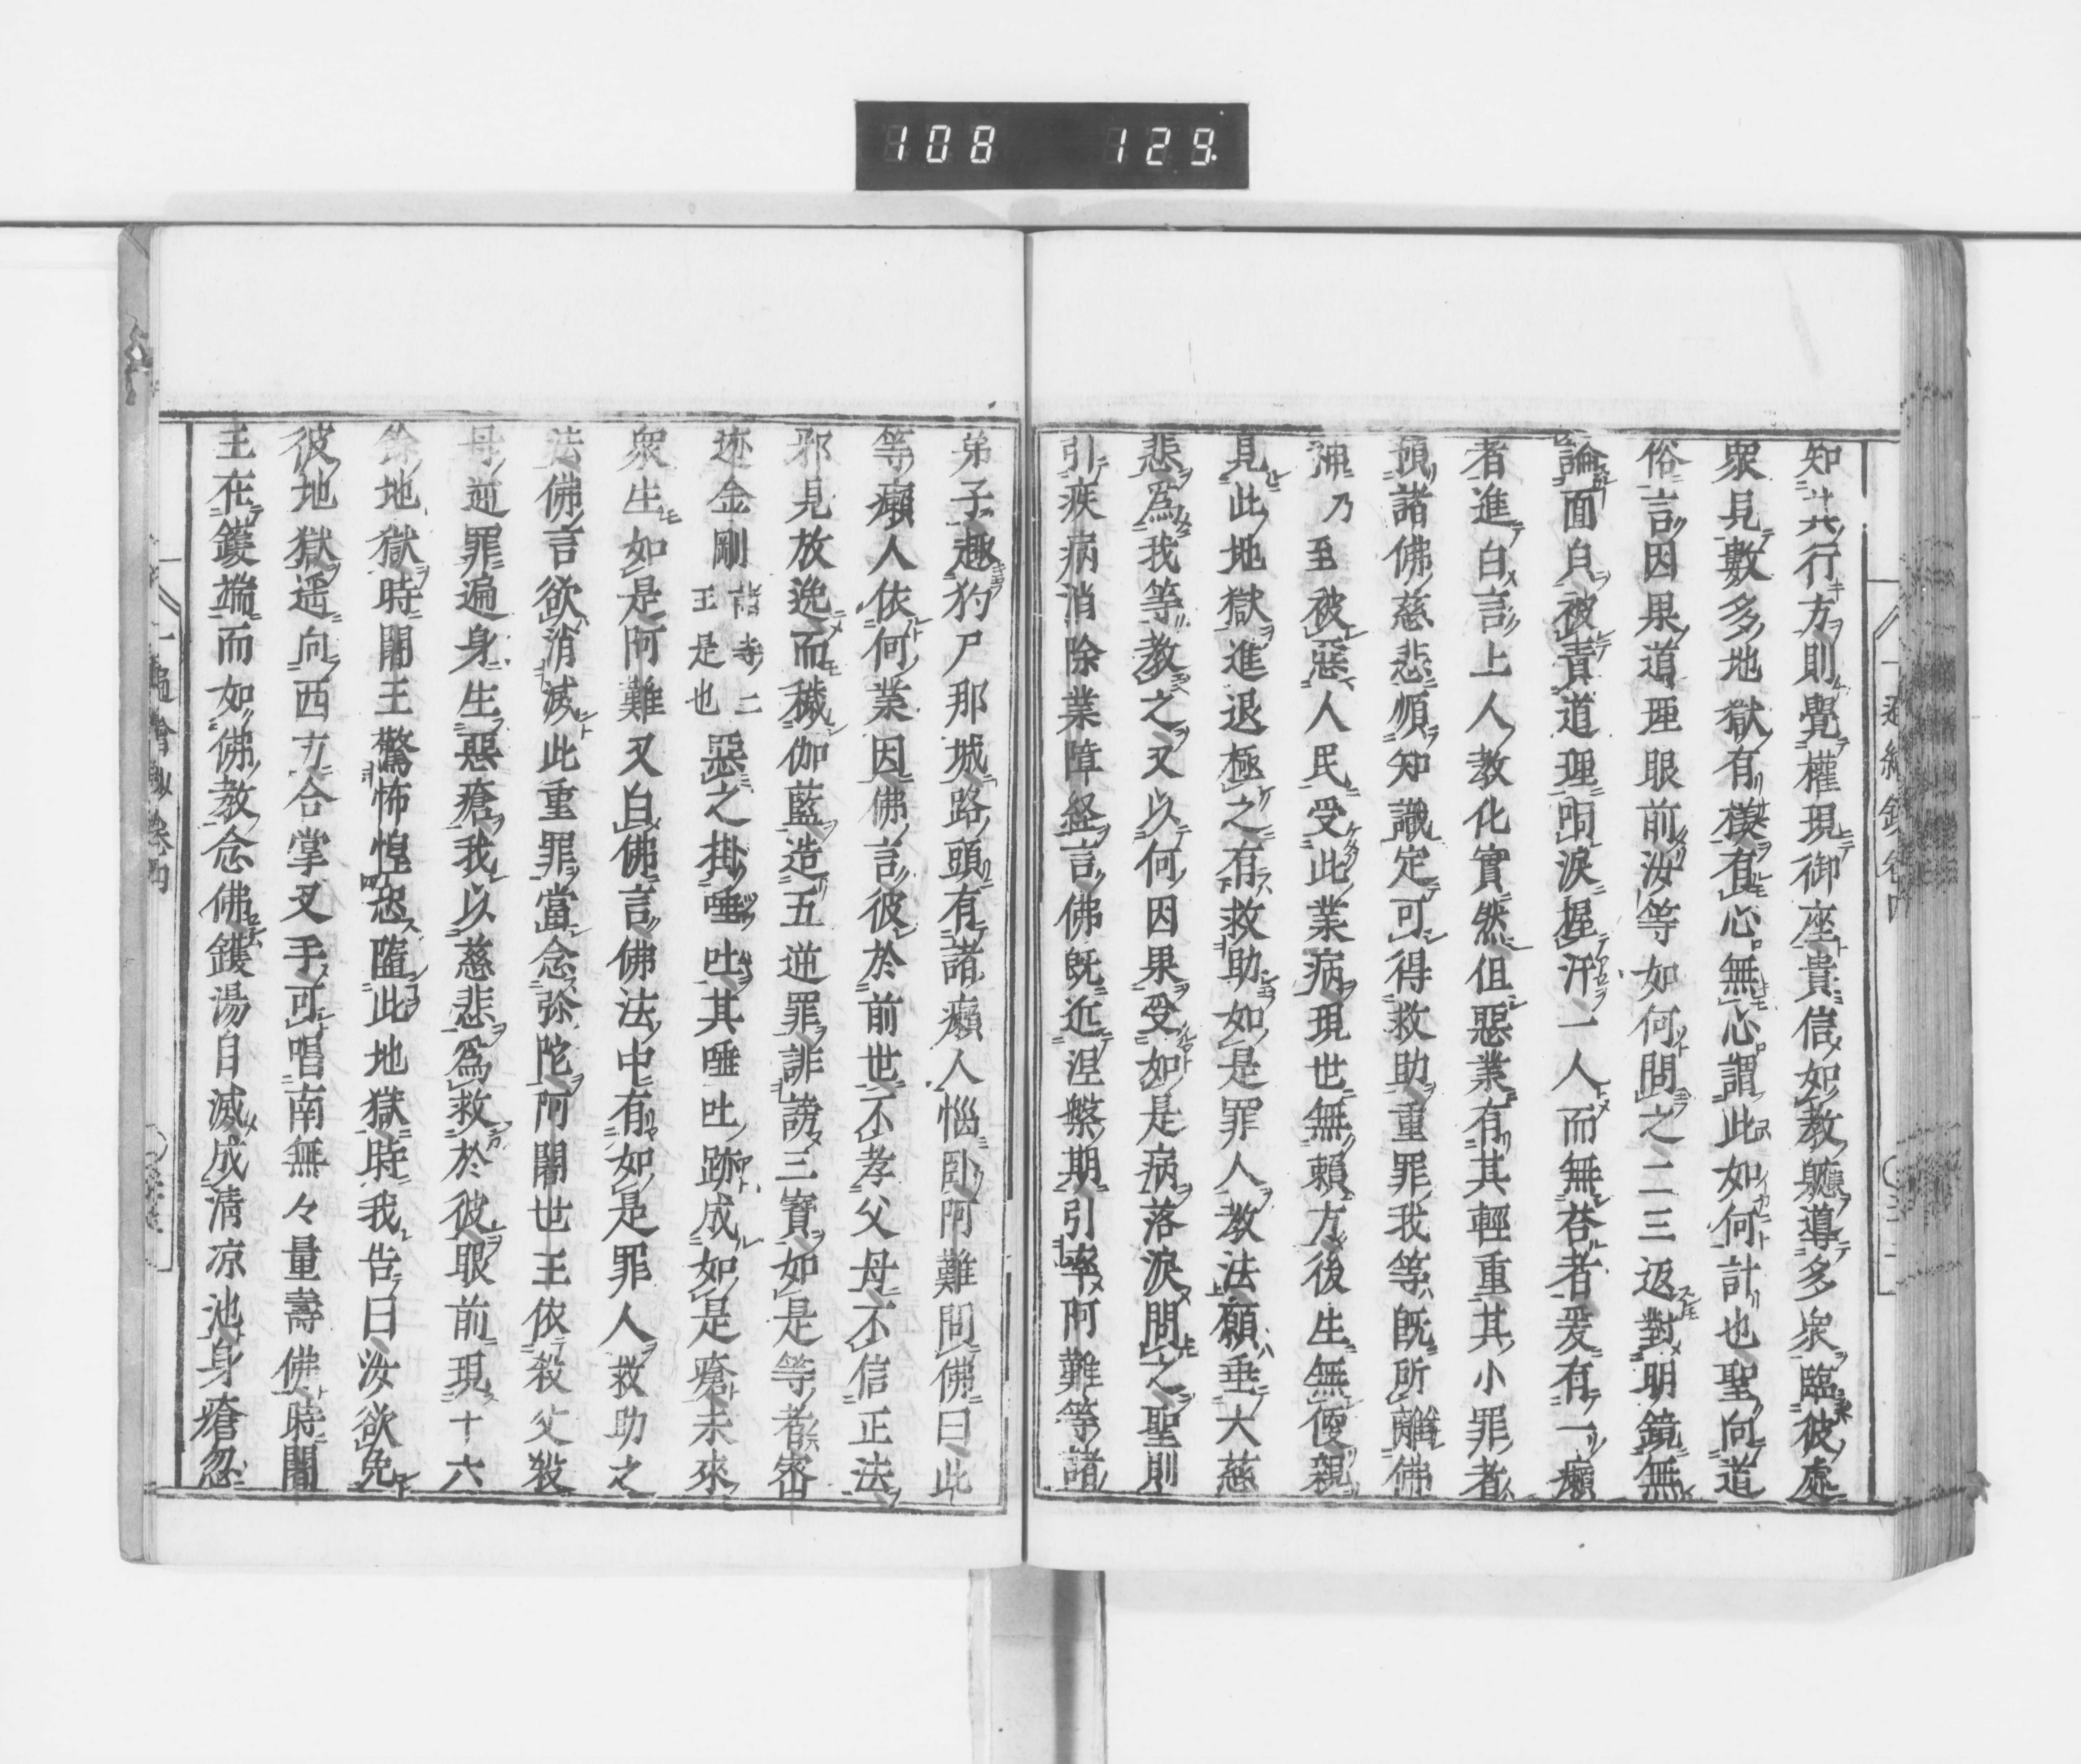 108 129
知其行方則覺權現御座貴信如教聽導多衆臨彼處
衆見數多地獄有様有心無心謂此如何計也聖向道
俗言因果道理眼前汝等如何問之二三返對明鏡無
論面白被責道理咽淚握汗一人而無荅者爰有一癩
者進白言上人教化實然但惡業有其輕重其小罪者
預諸佛慈悲順知識定可得救助重罪我等既所離佛
神乃至被惡人民受此業病現世無賴方後生無便親
見此地獄進退極之有救助如是罪人教法願垂大慈
悲為我等教之又以何因果受如是病落淚問之聖則
引疾病消除業障経言佛既近涅槃期引率阿難等諸
弟子趣犳尸那城路頭有諸癩人惱卧阿難問佛曰此
等癩人依何業因佛言彼於前世不孝父母不信正法
邪見放逸而穢伽藍造五逆罪誹謗三寶如是等者密
迹金剛諸寺二王是也惡之掛唾吐其唾吐跡成如是瘡未來
衆生如是阿難又白佛言佛法中有如是罪人救助之
法佛言欲消滅此重罪當念弥陀阿闍世王依殺父殺
母逆罪遍身生惡瘡我以慈悲爲救於彼眼前現十六
餘地獄時闍王驚怖惶恐墮此地獄時我告曰汝欲免
彼地獄遥向西方合掌叉手可唱南無々量壽佛時闍
王在鑊端而如佛教念佛鑊湯自滅成清凉池身瘡忽